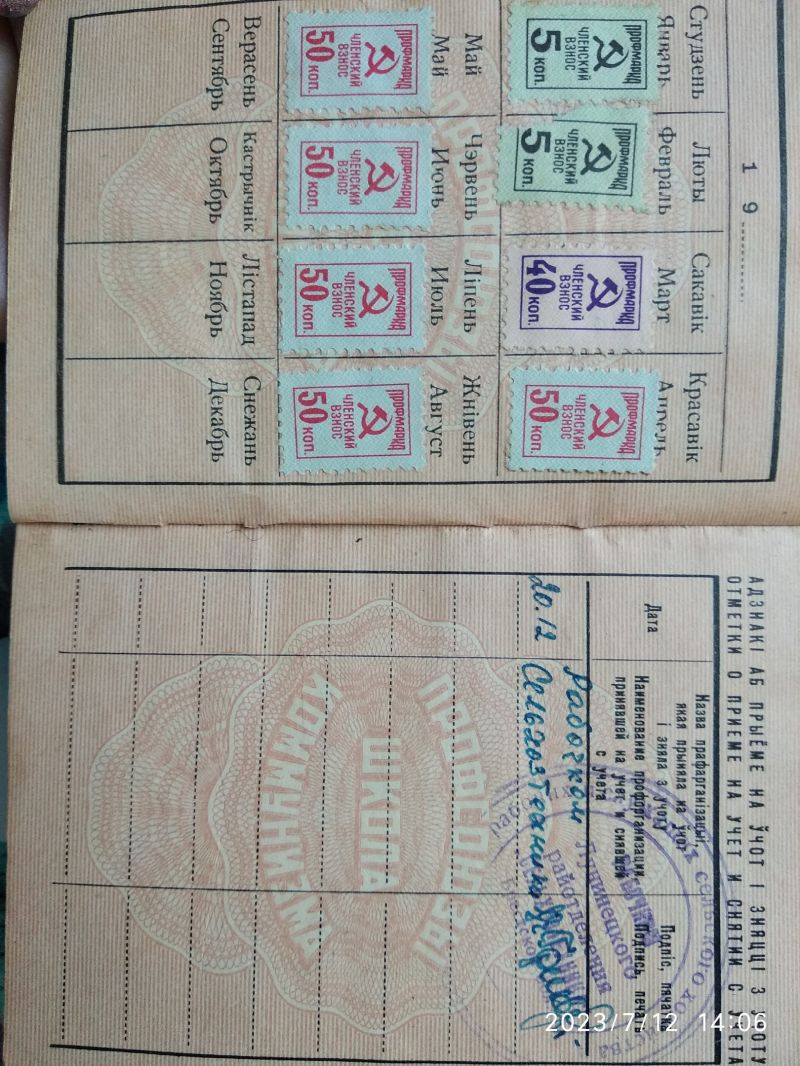 19
Студзень
Январь
Люты
Февраль
Сакавік
Март
Красавік
Апрель
ПРОФМАРКА
ЧЛЕНСКИЙ
ВЗНОС
5 коп.
ПРОФМАРКА
ЧЛЕНСКИЙ
ВЗНОС
5 коп.
ПРОФМАРКА
ЧЛЕНСКИЙ
ВЗНОС
40 коп.
ПРОФМАРКА
ЧЛЕНСКИЙ
ВЗНОС
50 коп.
Май
Май
Чэрвень
Июнь
Ліпень
Июль
Жнівень
Август
ПРОФМАРКА
ЧЛЕНСКИЙ
ВЗНОС
50 коп.
ПРОФМАРКА
ЧЛЕНСКИЙ
ВЗНОС
50 коп.
ПРОФМАРКА
ЧЛЕНСКИЙ
ВЗНОС
50 коп.
ПРОФМАРКА
ЧЛЕНСКИЙ
ВЗНОС
50 коп.
Верасень
Сентябрь
Кастрычнік
Октябрь
Лістапад
Ноябрь
Снежань
Декабрь
АДЗНАКІ АБ ПРЫЁМЕ НА ЎЧОТ І ЗНЯЦЦІ З УЧОТУ
ОТМЕТКИ О ПРИЕМЕ НА УЧЕТ И СНЯТИИ С УЧЕТА
Дата
Назва прафарганізацыі,
якая прыняла на ўчот
і зняла з учоту
Наименование профорганизации,
принявшей на учет и снявшей
с учета
Подпіс, пячатка
Подпись, печать
Рабочком
20.12 Сельхозтехники
сельского хозяйства
Лунинецкого
райотделения
ПРОФСОЮЗЫ
ШКОЛА
КОММУНИЗМА
2023/7/12 14:06